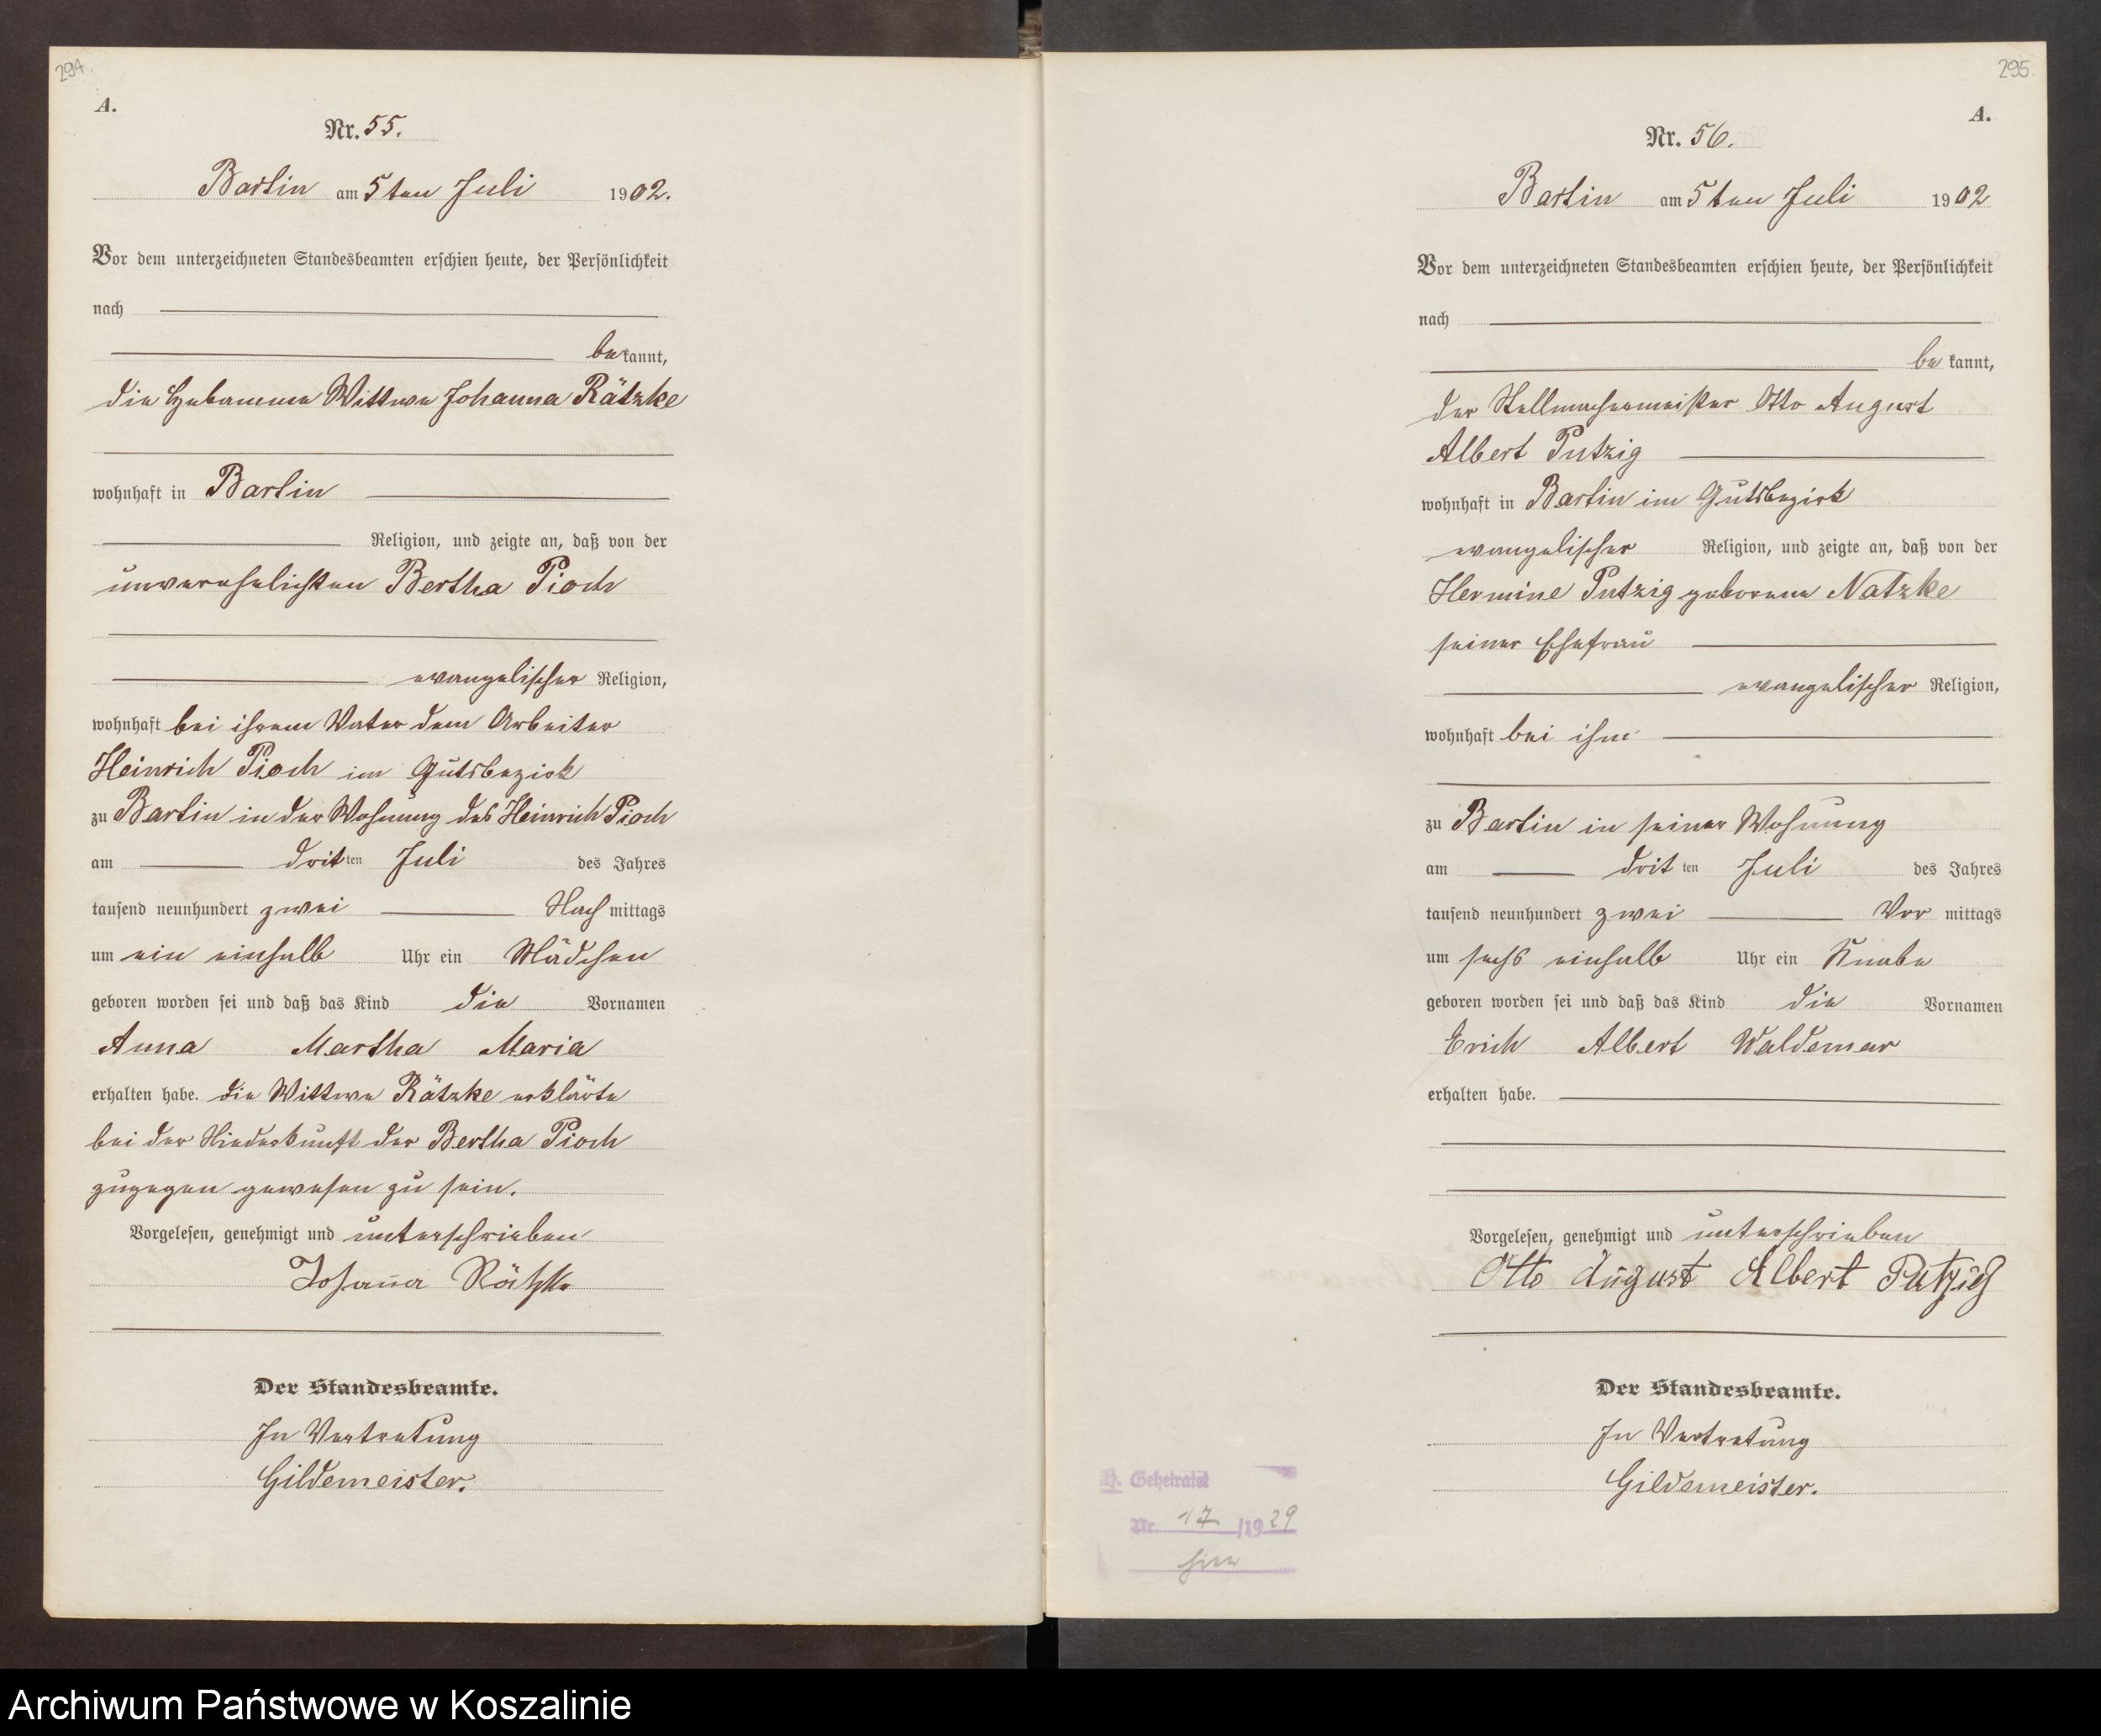 294.
A.
Nr. 55.
Bartin am 5ten Juli 1902.
Vor dem unterzeichneten Standesbeamten erschien heute, der Persönlichkeit
nach
bekannt,
die Hebamme Wittwe Johanna Rätzke
wohnhaft in Bartin
Religion, und zeigte an, daß von der
unverehelichten Bertha Pioch
evangelischer Religion,
wohnhaft bei ihrem Vater dem Arbeiter
Heinrich Pioch im Gutsbezirk
zu Bartin in der Wohnung des Heinrich Pioch
am dritten Juli des Jahres
tausend neunhundert zwei Nachmittags
um ein einhalb Uhr ein Mädchen
geboren worden sei und daß das Kind die Vornamen
Anna Martha Maria
erhalten habe. die Wittwe Rätzke erklärte
bei der Niederkunft der Bertha Pioch
zugegen gewesen zu sein.
Vorgelesen, genehmigt und unterschrieben
Johanna Rätzke
Der Standesbeamte.
In Vertretung
Gildemeister.
295.
A.
Nr. 56.
Bartin am 5ten Juli 1902
Vor dem unterzeichneten Standesbeamten erschien heute, der Persönlichkeit
nach
bekannt,
der Stellmachermeister Otto August
Albert Putzig
wohnhaft in Bartin im Gutsbezirk
evangelischer Religion, und zeigte an, daß von der
Hermine Putzig geborene Natzke
seiner Ehefrau
evangelischer Religion,
wohnhaft bei ihm
zu Bartin in seiner Wohnung
am dritten Juli des Jahres
tausend neunhundert zwei Vormittags
um sechs einhalb Uhr ein Knabe
geboren worden sei und daß das Kind die Vornamen
Erich Albert Waldemar
erhalten habe.
Vorgelesen, genehmigt und unterschrieben
Otto August Albert Putzig
Der Standesbeamte.
In Vertretung
Gildemeister.
H. Geheiratet
Nr. 17 /1929
hier
Archiwum Państwowe w Koszalinie